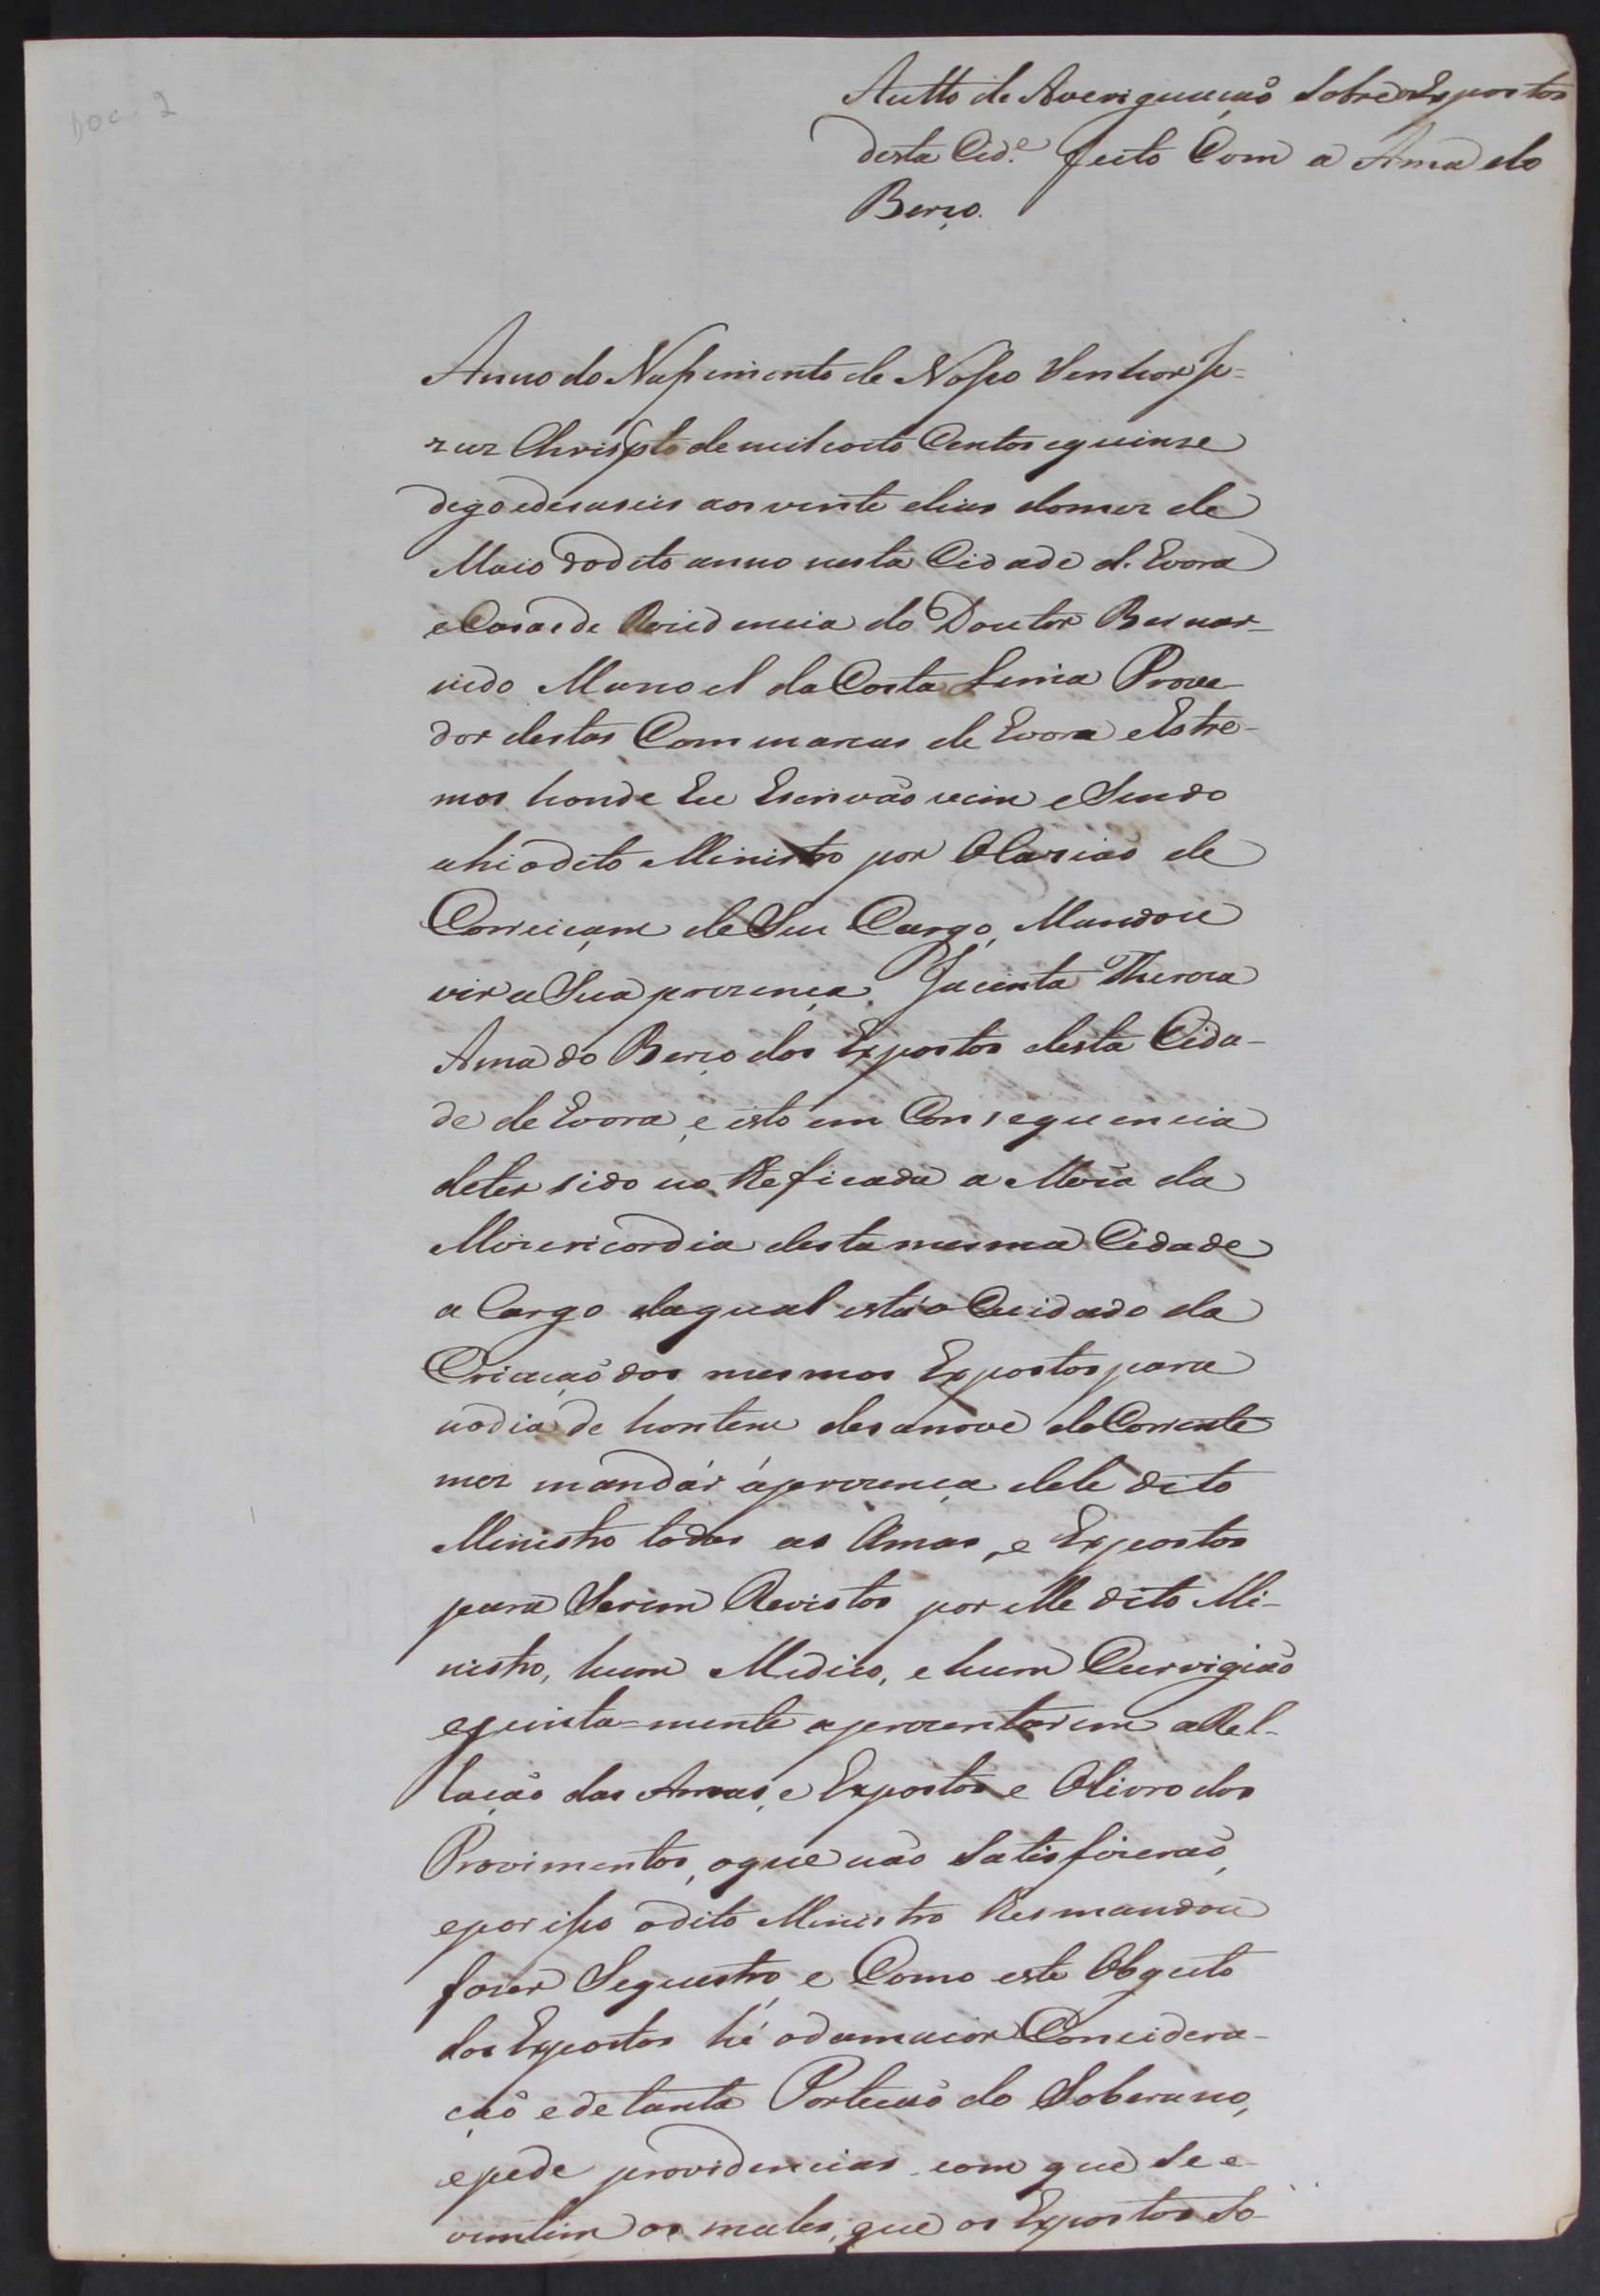 Doc. 2
Autto de Averiguaçaõ sobre os Expostos
desta Cid.e feito Com a Ama do
Berço.
Anno do Nascimento de Nosso Senhor Je=
zuz Christo de mil e oito Centos e quinze
digo e desaseis aos vinte dias do mez de
Maio do dito anno nesta Cidade d'Evora
e Casas de Rezidencia do Doutor Bernar-
dido Manoel da Costa Lima Prove-
dor destas Commarcas de Evora e Estre-
mos honde Eu Escrivão vim e Sendo
ahi o dito Ministro por Olaziaõ de
Correiçam de Seu Cargo, Mandou
vir a Sua prezença Jacinta Thereza
Ama do Berço dos Expostos desta Cida-
de de Evora, e isto em Consequencia
de ter sido noteficada a Meza da
Mizericordia desta mesma Cidade
a Cargo da qual está o Cuidado da
Criaçaõ dos mesmos Expostos para
no dia de hontem desanove do Corrente
mez mandár á prezença dele dito
Ministro todas as Amas, e Expostos
para Serem Revistos por elle dito Mi-
nistro, hum Medico, e hum Cururgiaõ
e juinta=mente aprezentarem a Rel-
laçaõ das Amas, e Expostos e O Livro dos
Provimentos, o que não Satisfizeraõ,
e por isso o dito Ministro lhes mandou
fazer Sequestro, e Como este Obgeto
dos Expostos hé o da maior Concidera-
çaõ e de tanta Porteçaõ do Soberano,
e pede providencias com que Se e-
vintem os males, que os Expostos So-